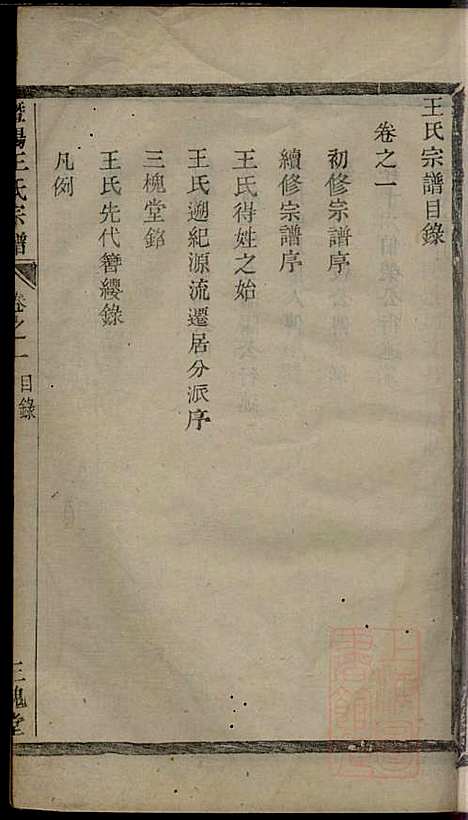 王氏宗譜目錄
卷之一
初修宗譜序
續修宗譜序
王氏得姓之始
王氏遡紀源流遷居分派序
三槐堂銘
王氏先代簪纓錄
凡例
暨陽王氏宗譜
卷之一
目錄
三槐堂